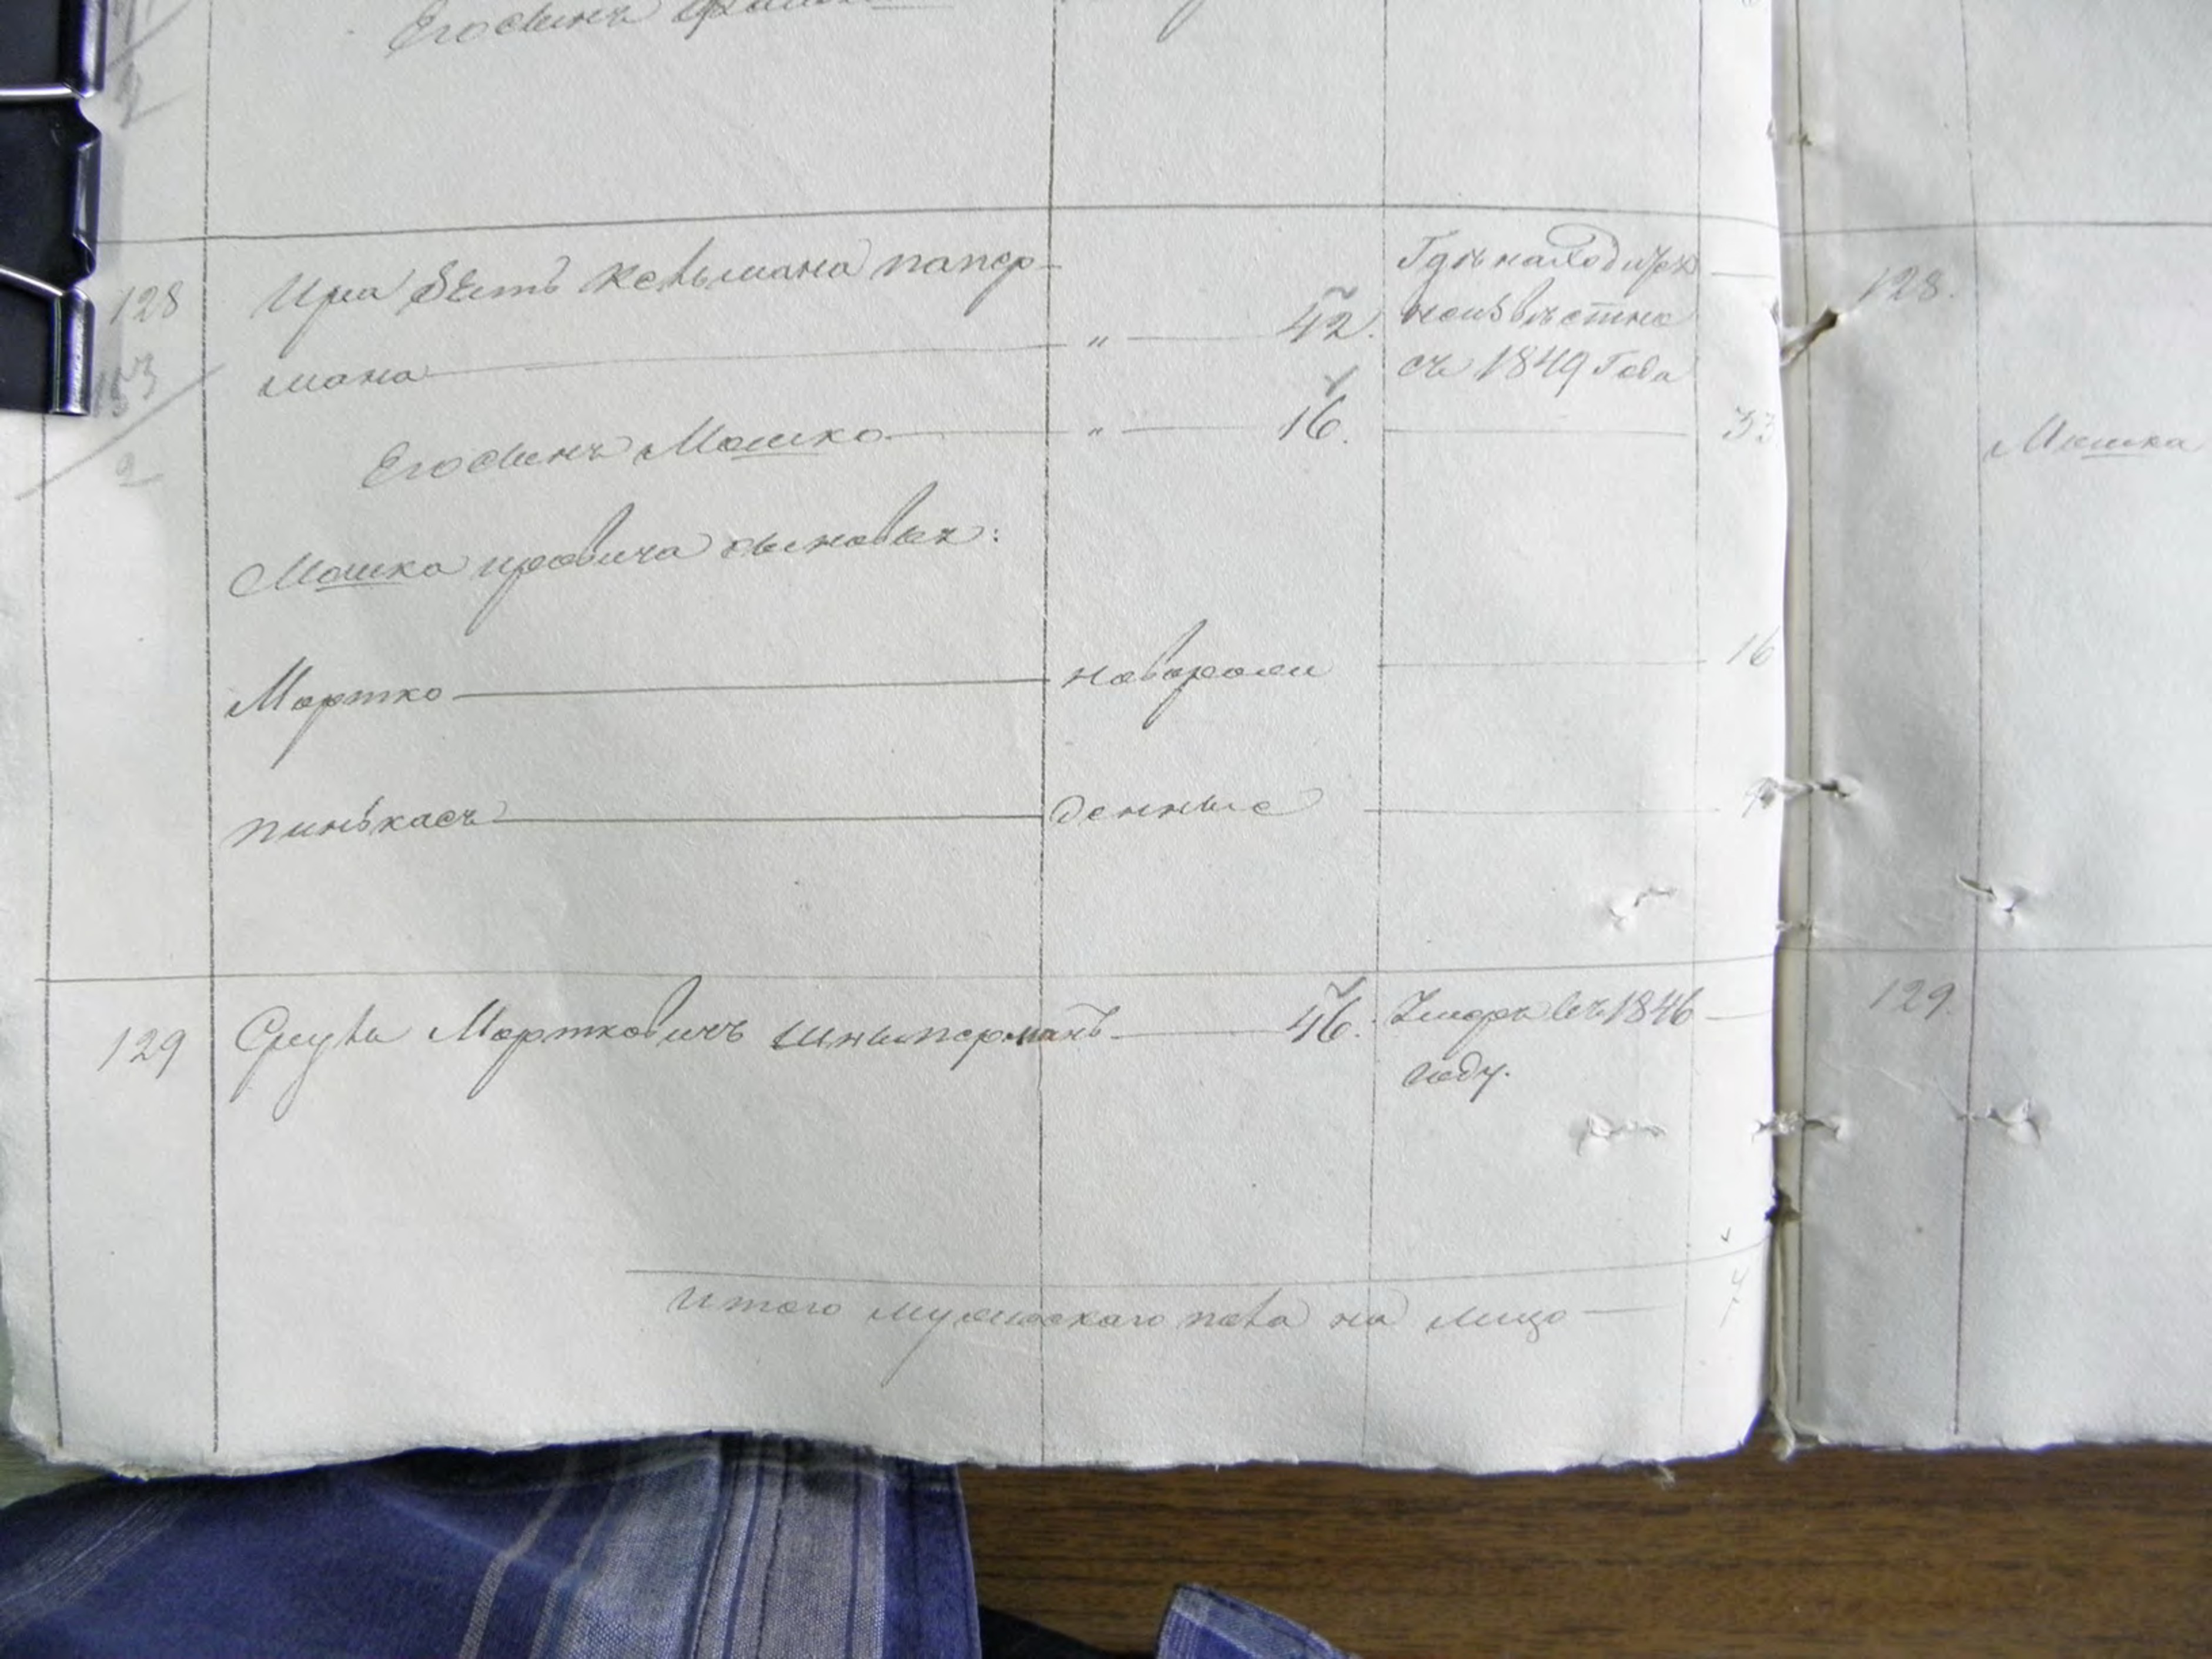 Его сынъ
128 Ира Зеитъ Кельмана папер-
мана " 42. Гдѣ находится
неизвѣстно
съ 1849 Года
Его сынъ Мошко " 16. 33
153
2
Мошка ировича сыновья:
Мортко новорож 16
пинькасъ денные 9
129 Сруль Мортковичъ Шнипперманъ 46. Умеръ въ 1846
году.
Итого мужескаго пола на лицо 7
128.
Мошка
129.